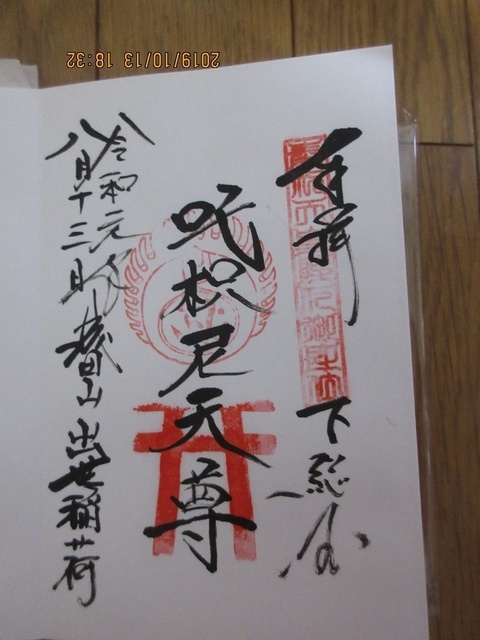 2019/10/13 18:32
奉拝 下総国
吒枳尼天尊
豊山出世稲荷
令和元年
八月十三日